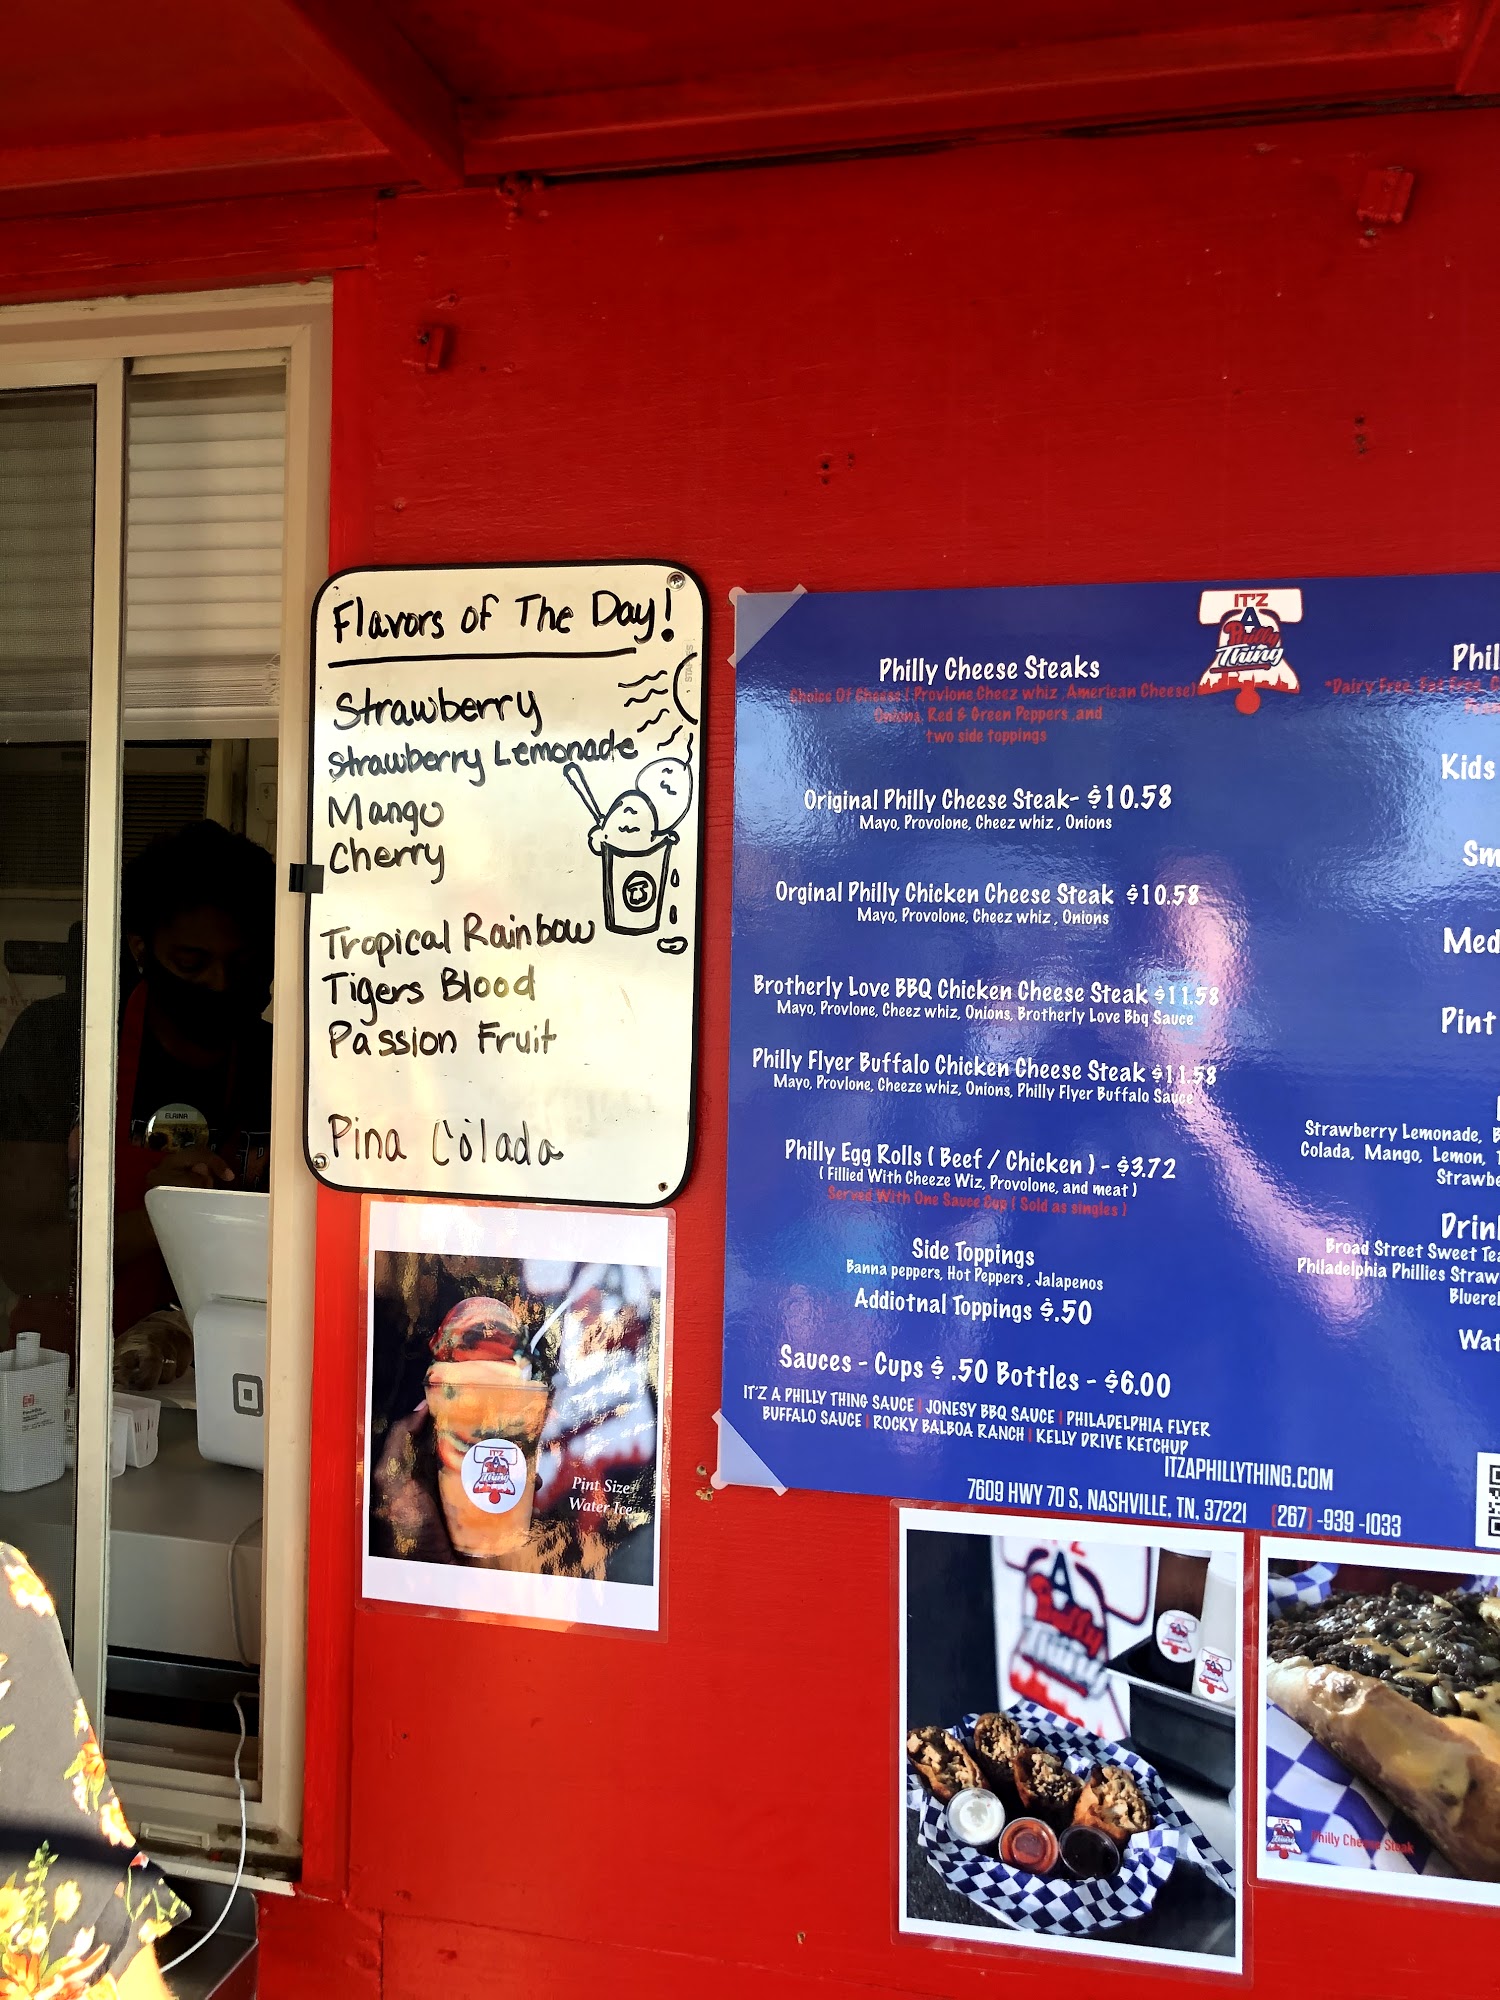 Flavors of The Day!
Strawberry
Strawberry Lemonade
Mango
Cherry
Tropical Rainbow
Tigers Blood
Passion Fruit
Pina Colada
STAPLES
ELAINA
Pint Size
Water Ice
IT'Z
A
Philly
Thing
Philly Cheese Steaks
Choice Of Cheese ( Provlone Cheez whiz , American Cheese)
Onions, Red & Green Peppers ,and
two side toppings
Original Philly Cheese Steak- $10.58
Mayo, Provolone, Cheez whiz , Onions
Orginal Philly Chicken Cheese Steak $10.58
Mayo, Provolone, Cheez whiz , Onions
Brotherly Love BBQ Chicken Cheese Steak $11.58
Mayo, Provlone, Cheez whiz, Onions, Brotherly Love Bbq Sauce
Philly Flyer Buffalo Chicken Cheese Steak $11.58
Mayo, Provlone, Cheeze whiz, Onions, Philly Flyer Buffalo Sauce
Philly Egg Rolls ( Beef / Chicken ) - $3.72
( Fillied With Cheeze Wiz, Provolone, and meat )
Served With One Sauce Cup ( Sold as singles )
Side Toppings
Banna peppers, Hot Peppers , Jalapenos
Addiotnal Toppings $.50
Sauces - Cups $ .50 Bottles - $6.00
IT'Z A PHILLY THING SAUCE | JONESY BBQ SAUCE | PHILADELPHIA FLYER
BUFFALO SAUCE | ROCKY BALBOA RANCH | KELLY DRIVE KETCHUP
ITZAPHILLYTHING.COM
7609 HWY 70 S, NASHVILLE, TN, 37221 (267) -939 -1033
Phil
*Dairy Free, Fat Free,
Kids
Sm
Med
Pint
Strawberry Lemonade, B
Colada, Mango, Lemon,
Strawbe
Drin
Broad Street Sweet Tea
Philadelphia Phillies Straw
Bluere
Wat
IT'Z
A
Philly
Thing
Philly Cheese Steak